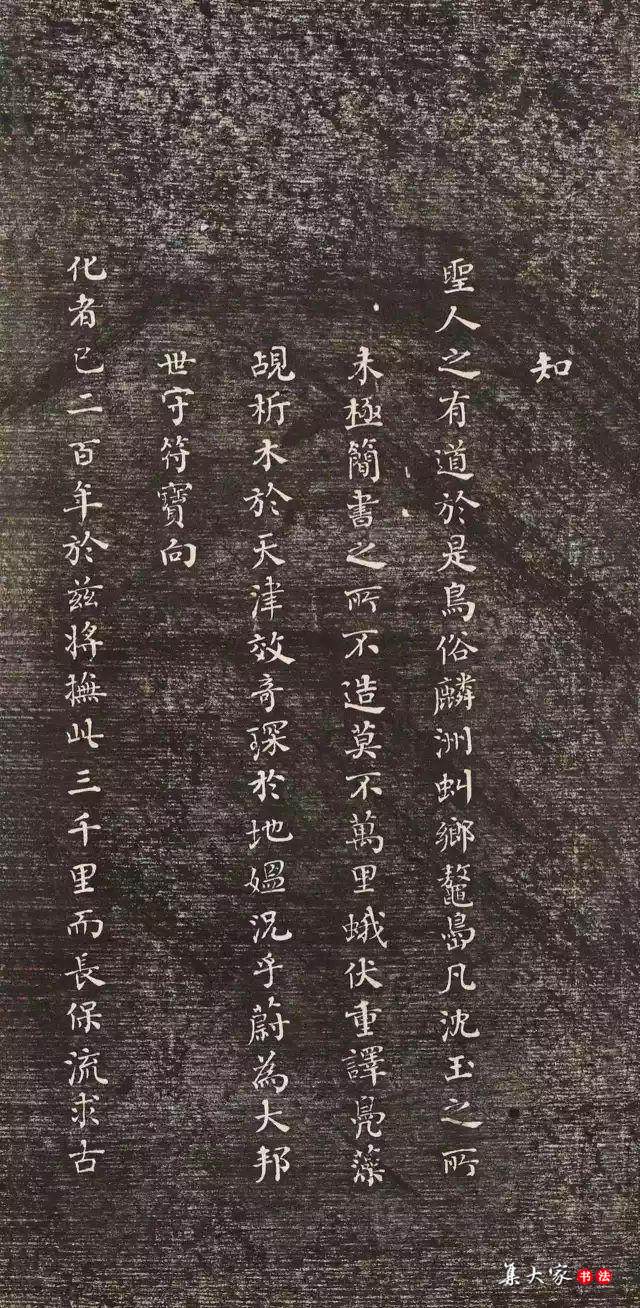 知
聖人之有道於是鳥俗麟洲虯鄉鼇島凡沈玉之所
未極簡書之所不造莫不萬里蛾伏重譯鳧藻
覘析木於天津效奇琛於地媼況乎蔚為大邦
世守符寶向
化者已二百年於茲將撫此三千里而長保流求古
集大家書法